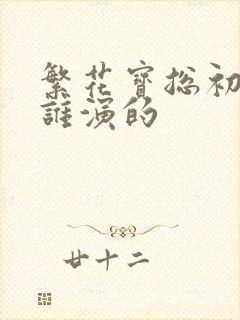 繁花寳总初
誰演的
廿十二